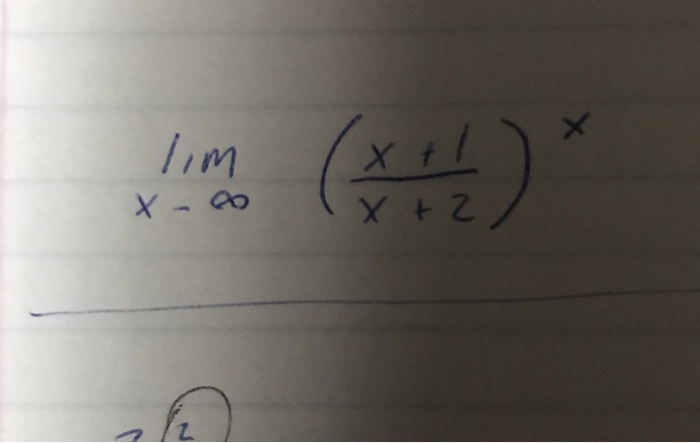 lim ( x + 1 / x + 2 ) ^ x
x - ∞
2